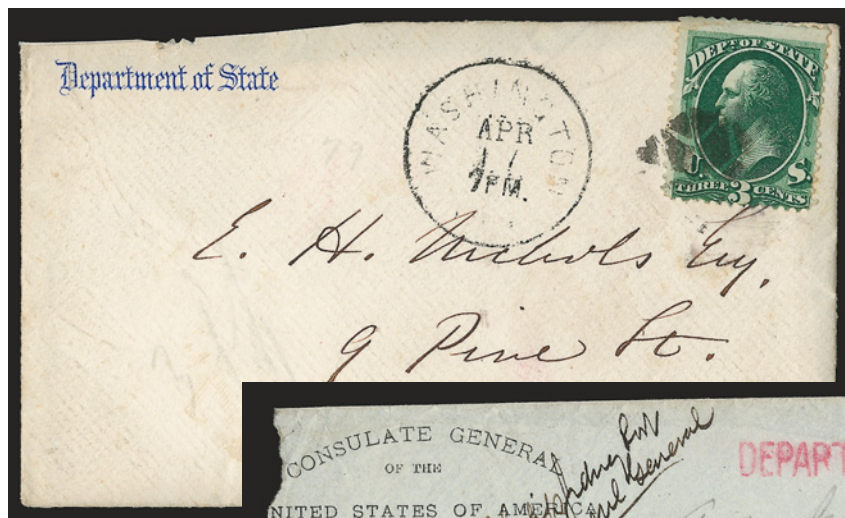 Department of State
WASHINGTON
APR
7PM.
DEPT OF STATE
U. S.
THREE 3 CENTS
E. H. Nichols Esq.
9 Pine St.
CONSULATE GENERAL
OF THE
UNITED STATES OF AMERICA
General
DEPART